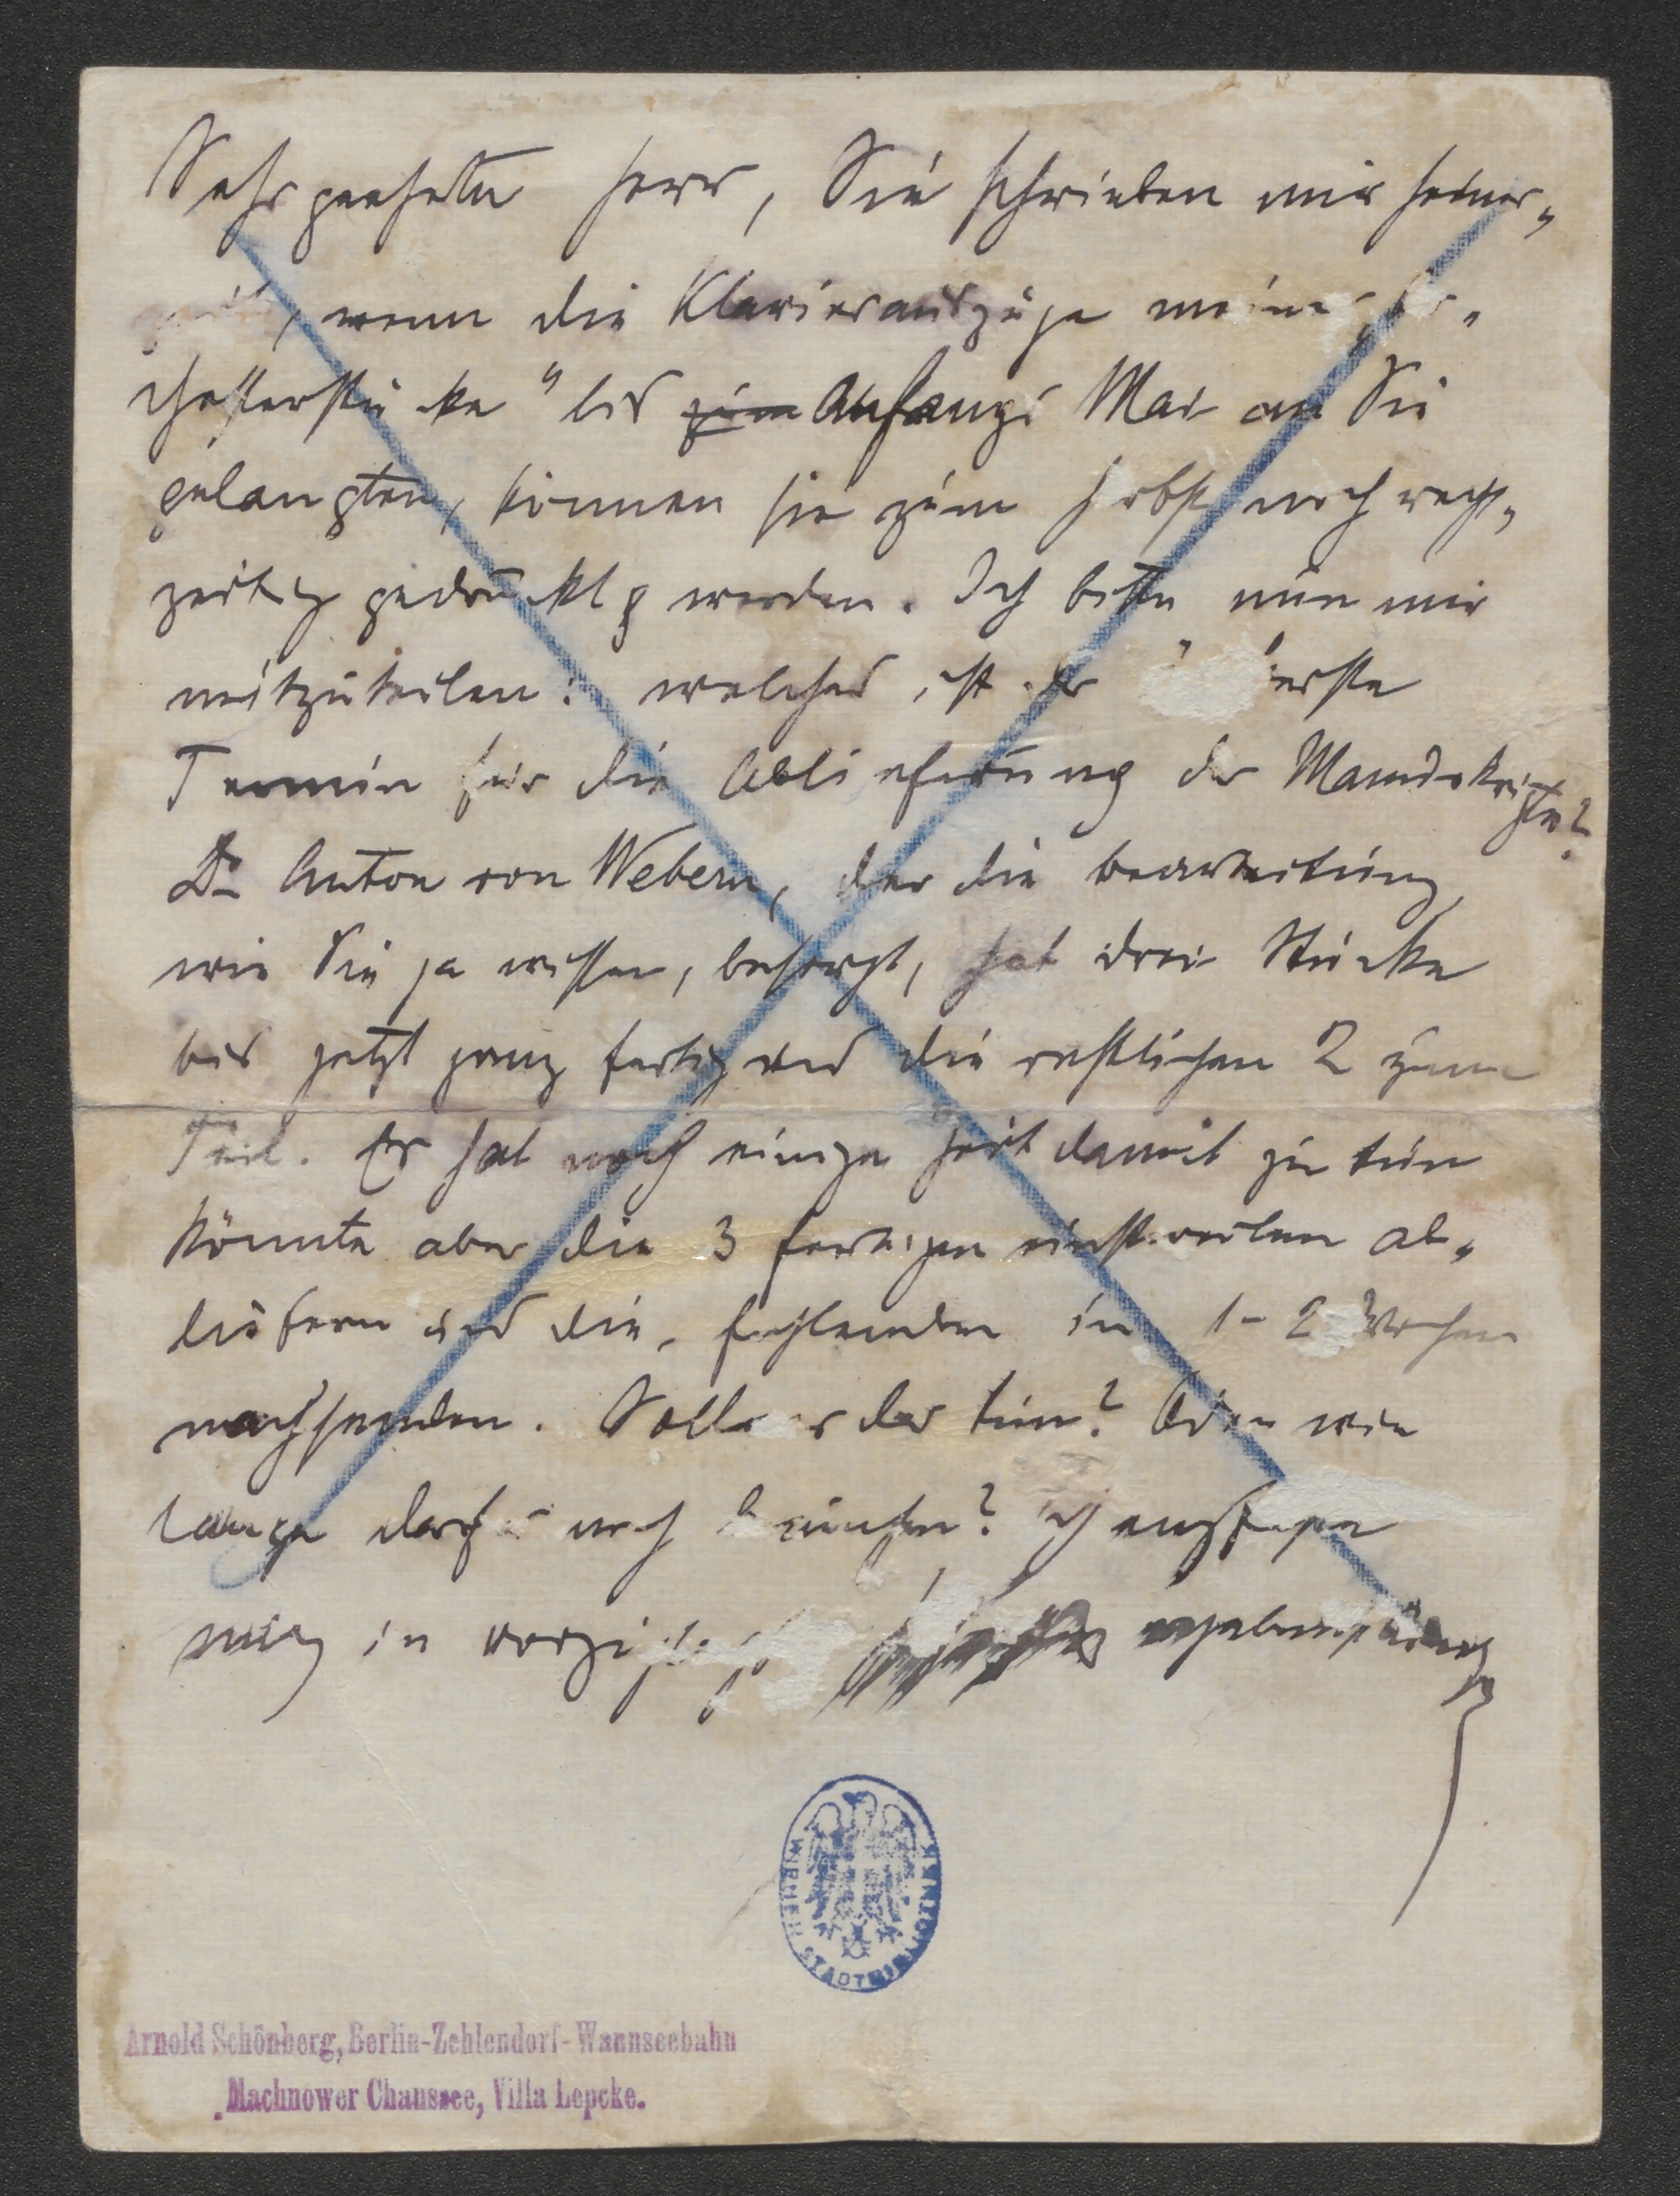 Sehr geehrter Herr, Sie schrieben mir seiner„
zeit, wenn die Klavierauszüge meiner Or„
chesterstücke" bis zum Anfangs Mai an Sie
gelangten, können sie zum Herbst noch recht„
zeitig gedruckt werden. Ich bitte nun mir
mitzuteilen: welches ist der erste
Termin für die Ablieferung der Manuskripte?
Dr Anton von Webern, der die Bearbeitung,
wie Sie ja wissen, besorgt, hat drei Stücke
bis jetzt ganz fertig und die restlichen 2 zum
Teil. Er hat noch einige Zeit damit zu tun
könnte aber die 3 fertigen einstweilen ab„
liefern und die fehlenden in 1-2 Wochen
nachsenden. Soll er das tun? Oder wie
lange darf er noch brauchen? Ich empfehle
mich in vorzüglicher
WIENER STADTBIBLIOTHEK
Arnold Schönberg, Berlin-Zehlendorf-Wannseebahn
Machnower Chaussee, Villa Lepcke.